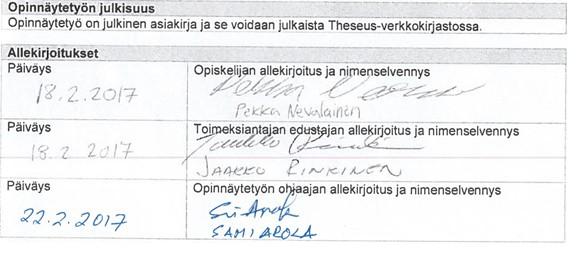 Opinnäytetyön julkisuus
Opinnäytetyö on julkinen asiakirja ja se voidaan julkaista Theseus-verkkokirjastossa.
Allekirjoitukset
Päiväys
Opiskelijan allekirjoitus ja nimenselvennys
18.2.2017
Pekka Nevalainen
Päiväys
Toimeksiantajan edustajan allekirjoitus ja nimenselvennys
18.2 2017
JAAKKO RINKINEN
Päiväys
Opinnäytetyön ohjaajan allekirjoitus ja nimenselvennys
22.2.2017
SAMI AROLA